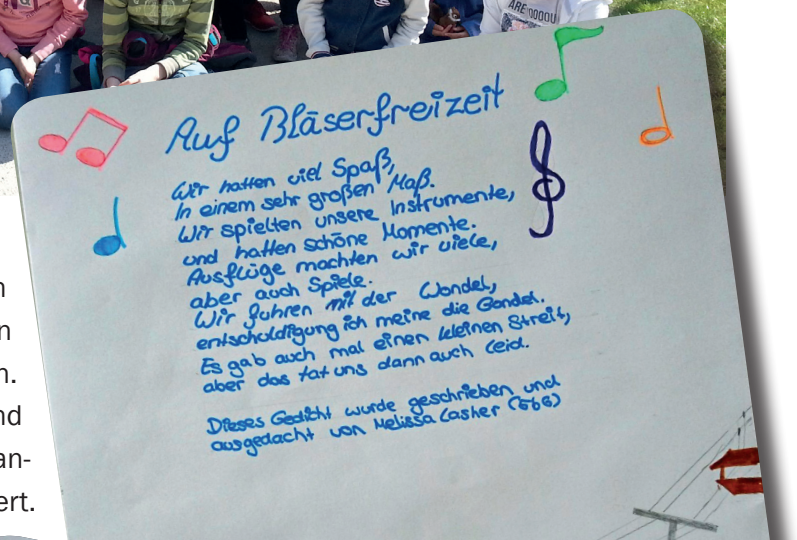 ARE
Auf Bläserfreizeit
Wir hatten viel Spaß,
In einem sehr großen Maß.
Wir spielten unsere Instrumente,
und hatten schöne Momente.
Ausflüge machten wir viele,
aber auch Spiele.
Wir fuhren mit der Wondel,
entschuldigung ich meine die Gondel.
Es gab auch mal einen kleinen Streit,
aber das tat uns dann auch Leid.
Dieses Gedicht wurde geschrieben und
ausgedacht von Melissa Lasher (6b6)
n
n
n.
nd
an-
ert.